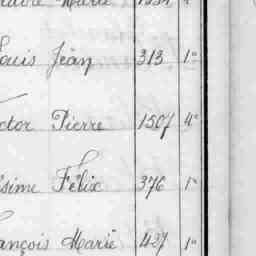 Marie
ouis Jean 313 1°
ctor Pierre 1507 4°
sime Félix 376 1°
ançois Marie 427 1°